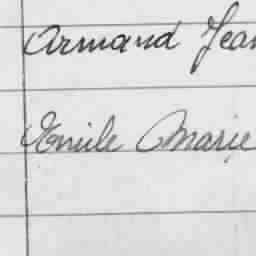 Armand Jean
Emile Marie